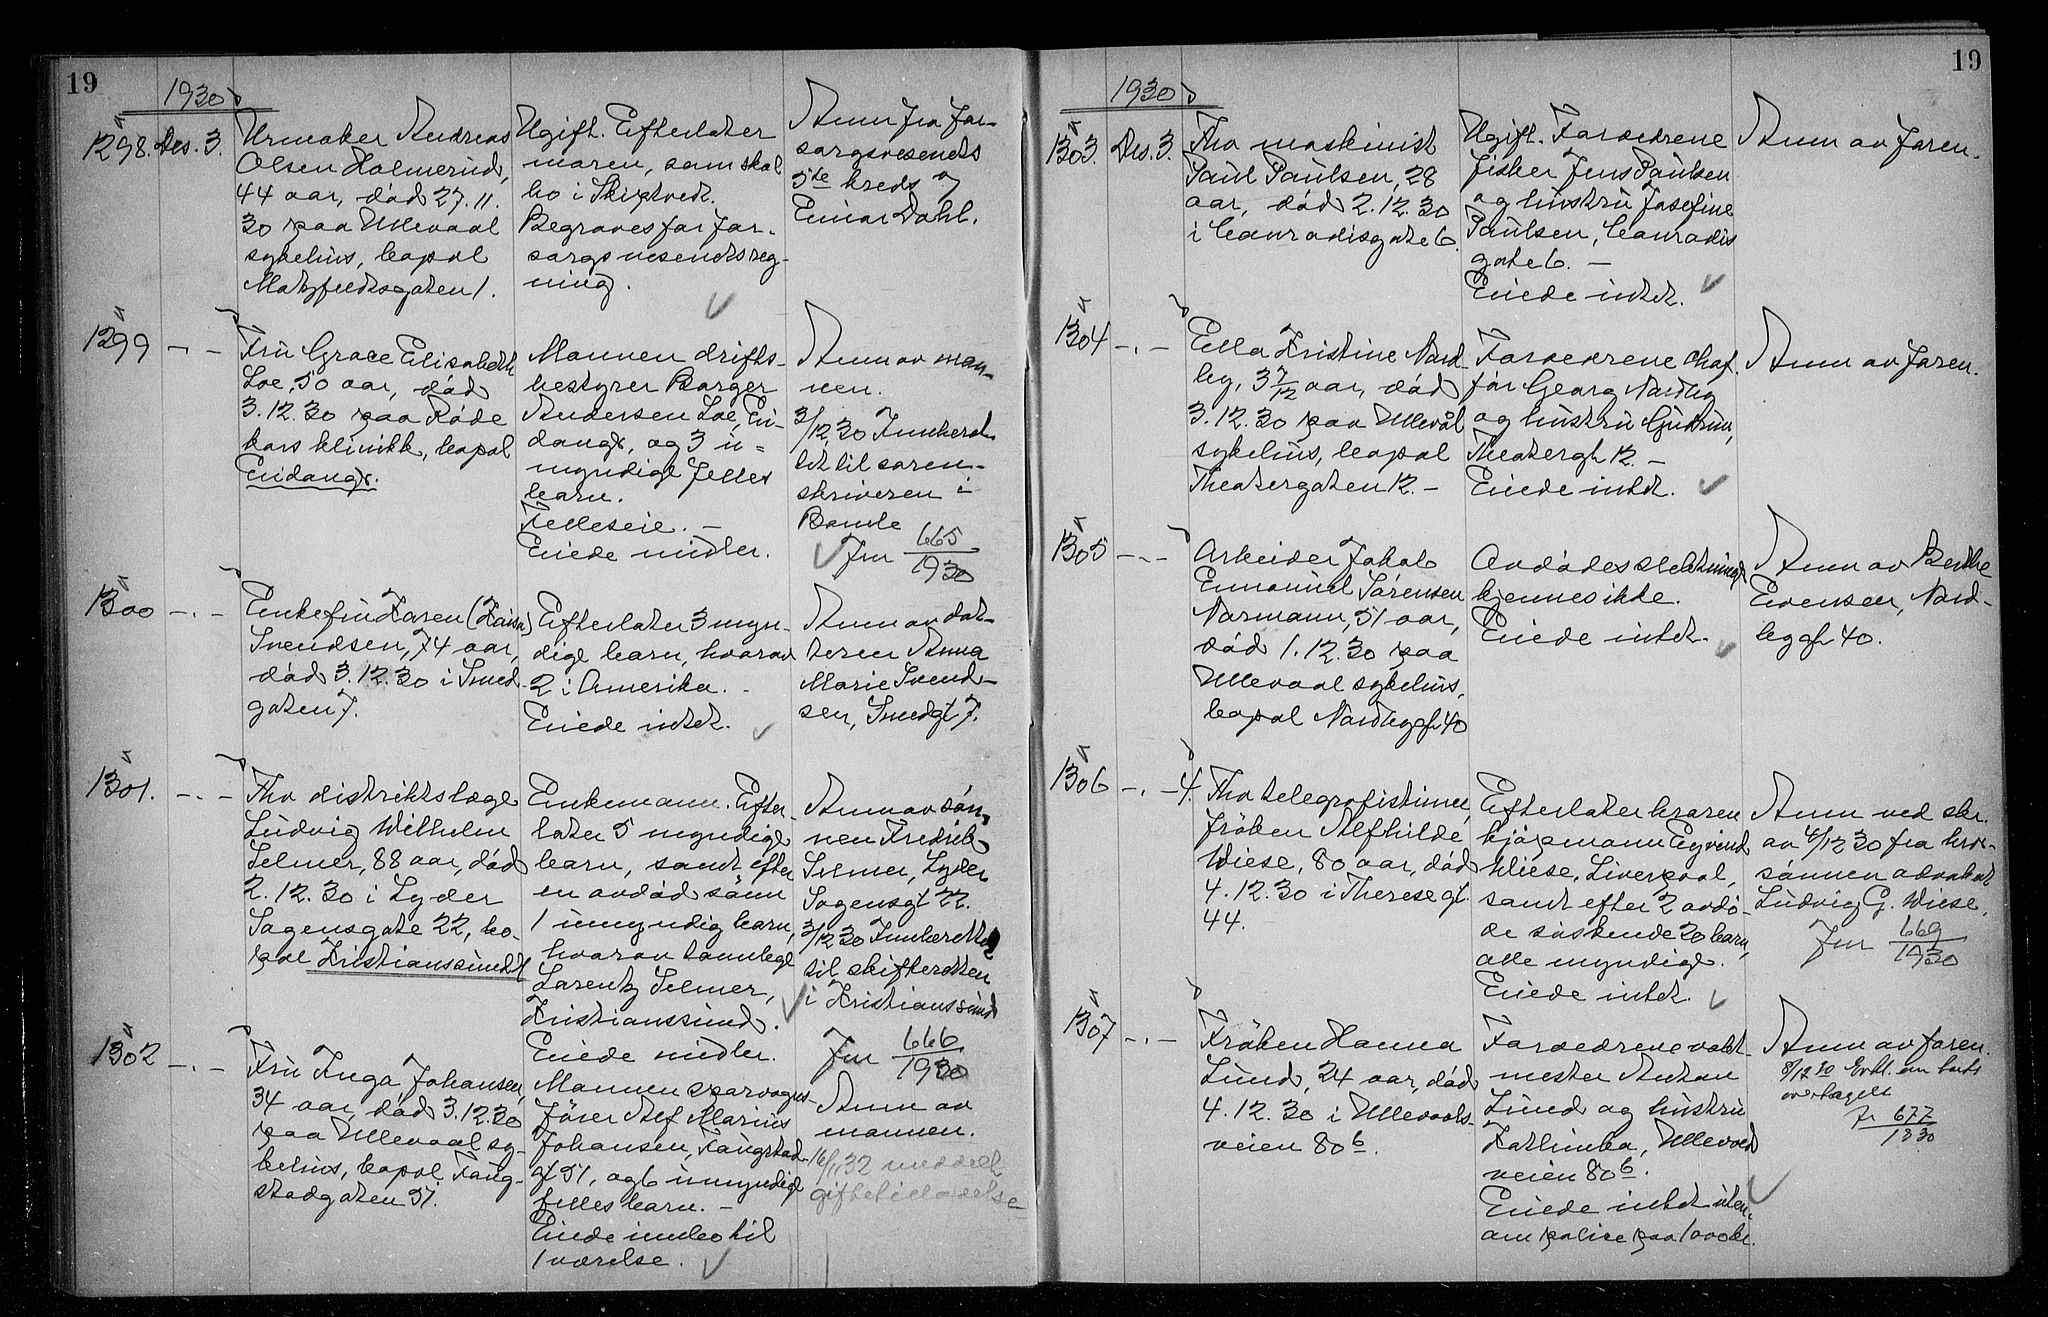 19
1930
1298. Des. 3.
Urmaker Andreas
Olsen Holmerud,
44 aar, död 27.11.
30 paa Ullevaal
sykehus, bopæl
Maltzfeldtsgaten 1.
Ugift. Efterlater
moren, som skal
bo i Skiptvedt.
Begraves for for-
sorgsvesenets reg-
ning.
Anm fra for-
sorgsvesenets
5te kreds v
Einar Dahl.
1299 -.-
Fru Grace Elisabeth
Loe, 50 aar, död
3.12.30 paa Röde
kors klinikk, bopæl
Eidanger.
Mannen drifts-
bestyrer Borger
Andersen Loe, Ei-
danger, og 3 u=
myndige felles
barn.
Felleseie. -
Eiede midler.
Anm av man-
nen.
3/12 30 Innberet-
tet til soren-
skriveren i
Bamle
Jnr 665/1930
1300 -.-
Enkefru Karen (Kaisa)
Svendsen, 74 aar,
död 3.12.30 i Smed-
gaten 7.
Efterlater 3 myn-
dige barn, hvorav
2 i Amerika. -
Eiede intet.
Anm av dat-
teren Anna
Marie Svend-
sen, Smedgt 7.
1301. -.-
Fhv distriktslæge
Ludvig Wilhelm
Selmer, 88 aar, död
2.12.30 i Lyder
Sagensgate 22, bo-
pæl Kristianssund N
Enkemann. Efter-
later 5 myndige
barn, samt efter
en avdöd sönn
1 umyndig barn,
hvorav tannlege
Lorentz Selmer,
Kristianssund.
Eiede midler.
Anm av søn-
nen Fredrik
Selmer, Lyder
Sagensgt 22.
3/12 30 Innberettet
til skifteretten
i Kristianssund
Jnr 666/1930
1302 -.-
Fru Inga Johansen,
34 aar, död 3.12.30
paa Ullevaal sy-
kehus, bopæl Faug-
stadgaten 51.
Mannen sporvogns-
förer Alf Marius
Johansen, Faugstad-
gt 51, og 6 umyndige
felles barn. -
Eiede innbo til
1 værelse.
Anm av
mannen.
16/1 32 meddelt
giftetilladelse
19
1930
1303. Des. 3.
Fhv maskinist
Paul Paulsen, 28
aar, död 2.12.30
i Conradisgate 6.
Ugift. Forældrene
fisker Jens Paulsen
og hustru Josefine
Paulsen, Conradis
gate 6. -
Eiede intet.
Anm av faren.
1304 -.-
Ella Kristine Nord-
by, 3 7/12 aar, död
3.12.30 paa Ullevål
sykehus, bopæl
Theatergaten 12. -
Forældrene chaf-
för Georg Nordby
og hustru Gudrun,
Theatergt 12. -
Eiede intet.
Anm av faren.
1305 -.-
Arbeider Jakob
Emanuel Sørensen
Normann, 51 aar,
död 1.12.30 paa
Ullevaal sykehus,
bopæl Nordbygt 40
Avdödes slektninge
kjennes ikke.
Eiede intet.
Anm av Berthe
Evensen, Nord-
bygt 40.
1306 -.- 4.
Fhv telegrafistinne,
fröken Alfhilde
Wiese, 80 aar, död
4.12.30 i Therese gt
44.
Efterlater broren
kjöpmann Eyvind
Wiese, Liverpool,
samt efter 2 avdö-
de söskende 20 barn,
alle myndige.
Eiede intet.
Anm ved skr.
av 4/12 30 fra bror-
sönnen advokat
Ludvig G. Wiese.
Jnr 669/1930
1307 -.-
Fröken Hanna
Lund, 24 aar, död
4.12.30 i Ullevaals-
veien 80 b.
Forældrene vakt-
mester Anton
Lund og hustru
Kathinka, Ullevaals
veien 80 b.
Eiede intet uten-
om police paa 1000 kr.
Anm av faren.
8/12 30 Erkl. om boets
overtagelse
Jr 677/1930